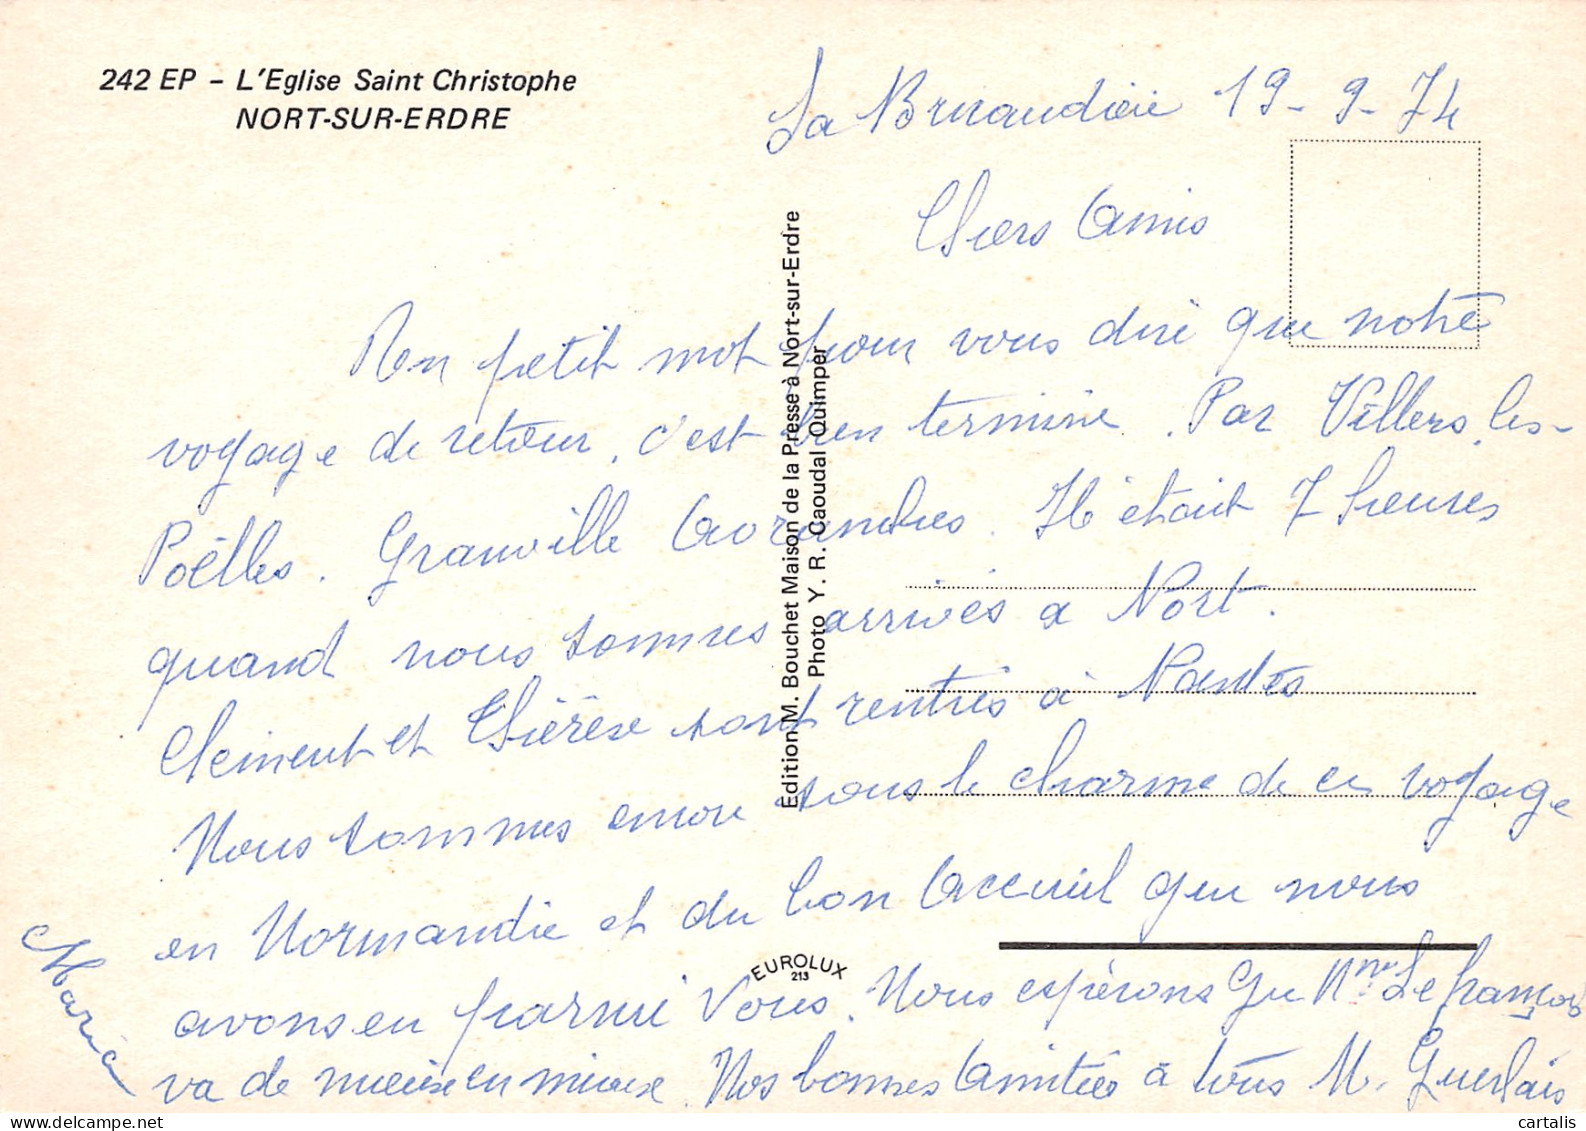 242 EP - L'Eglise Saint Christophe
NORT-SUR-ERDRE
La 19-9-74
Chers Amis
petit mot pour vous dire que notre
voyage de retour, c'est bien terminé. Par Villers-les-
Poëlles. Granville Avranches. Il était 7 heures
quand nous sommes arrivés à Nort.
Clément et Thérèse sont rentrés à Nantes
Nous sommes encore sous le charme de ce voyage
en Normandie et du bon Acceuil que nous
avons eu parmi Vous. Nous espérons que Mme Lefrançois
va de mieux en mieux. Nos bonnes Amitiés à tous M. Guerlais
Maria
Edition M. Bouchet Maison de la Presse à Nort-sur-Erdre
Photo Y. R. Caoudal Quimper
EUROLUX
213
cartalis